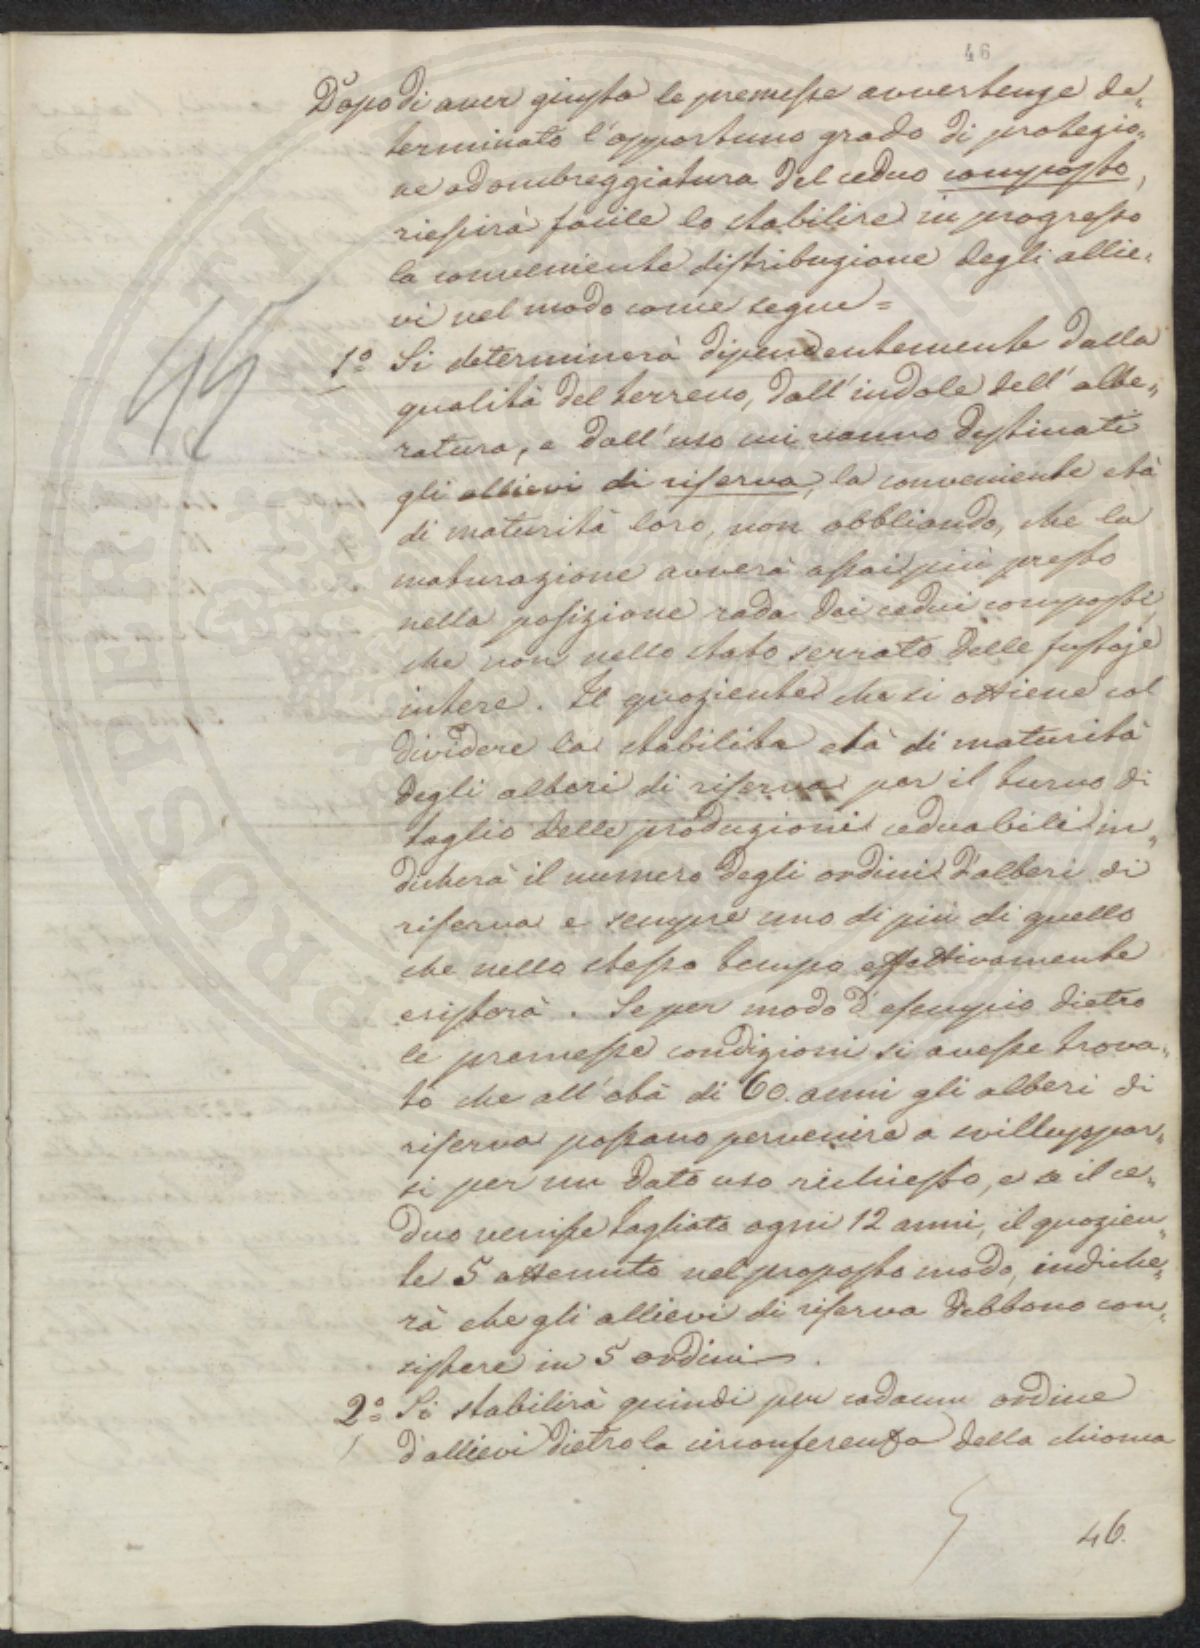 46
Dopo di aver giusta le premesse avvertenze de„
terminato l'opportuno grado di protezio„
ne adombreggiatura del ceduo composto,
riescirà facile lo stabilire in progresso
la conveniente distribuzione degli allie„
vi nel modo come segue =
45
1º Si determinerà dipendentemente dalla
qualità del terreno, dall'indole dell'albe„
ratura, e dall'uso cui vanno destinati
gli allievi di riserva, la conveniente età
di maturità loro, non obbliando, che la
maturazione avverà assai più presto
nella posizione rada dai cedui composti,
che non nello stato serrato delle fustaje
intere. Il quoziente che si ottiene col
dividere la stabilita età di maturità
degli alberi di riserva per il turno di
taglio delle produzioni ceduabili in„
dicherà il numero degli ordini d'alberi di
riserva e sempre uno di più di quello
che nello stesso tempo effettivamente
esisterà. Se per modo d'esempio dietro
le premesse condizioni si avesse trova„
to che all'età di 60. anni gli alberi di
riserva possano pervenire a svillüppar„
si per un dato uso richiesto, e se il ce„
duo venisse tagliato ogni 12 anni, il quozien„
te 5 ottenuto nel proposto modo, indiche„
rà che gli allievi di riserva debbono con„
sistere in 5 ordini.
2º Si stabilirà quindi per cadaun ordine
d'allievi dietro la circonferenza della chioma
46.
PROSPERITATI